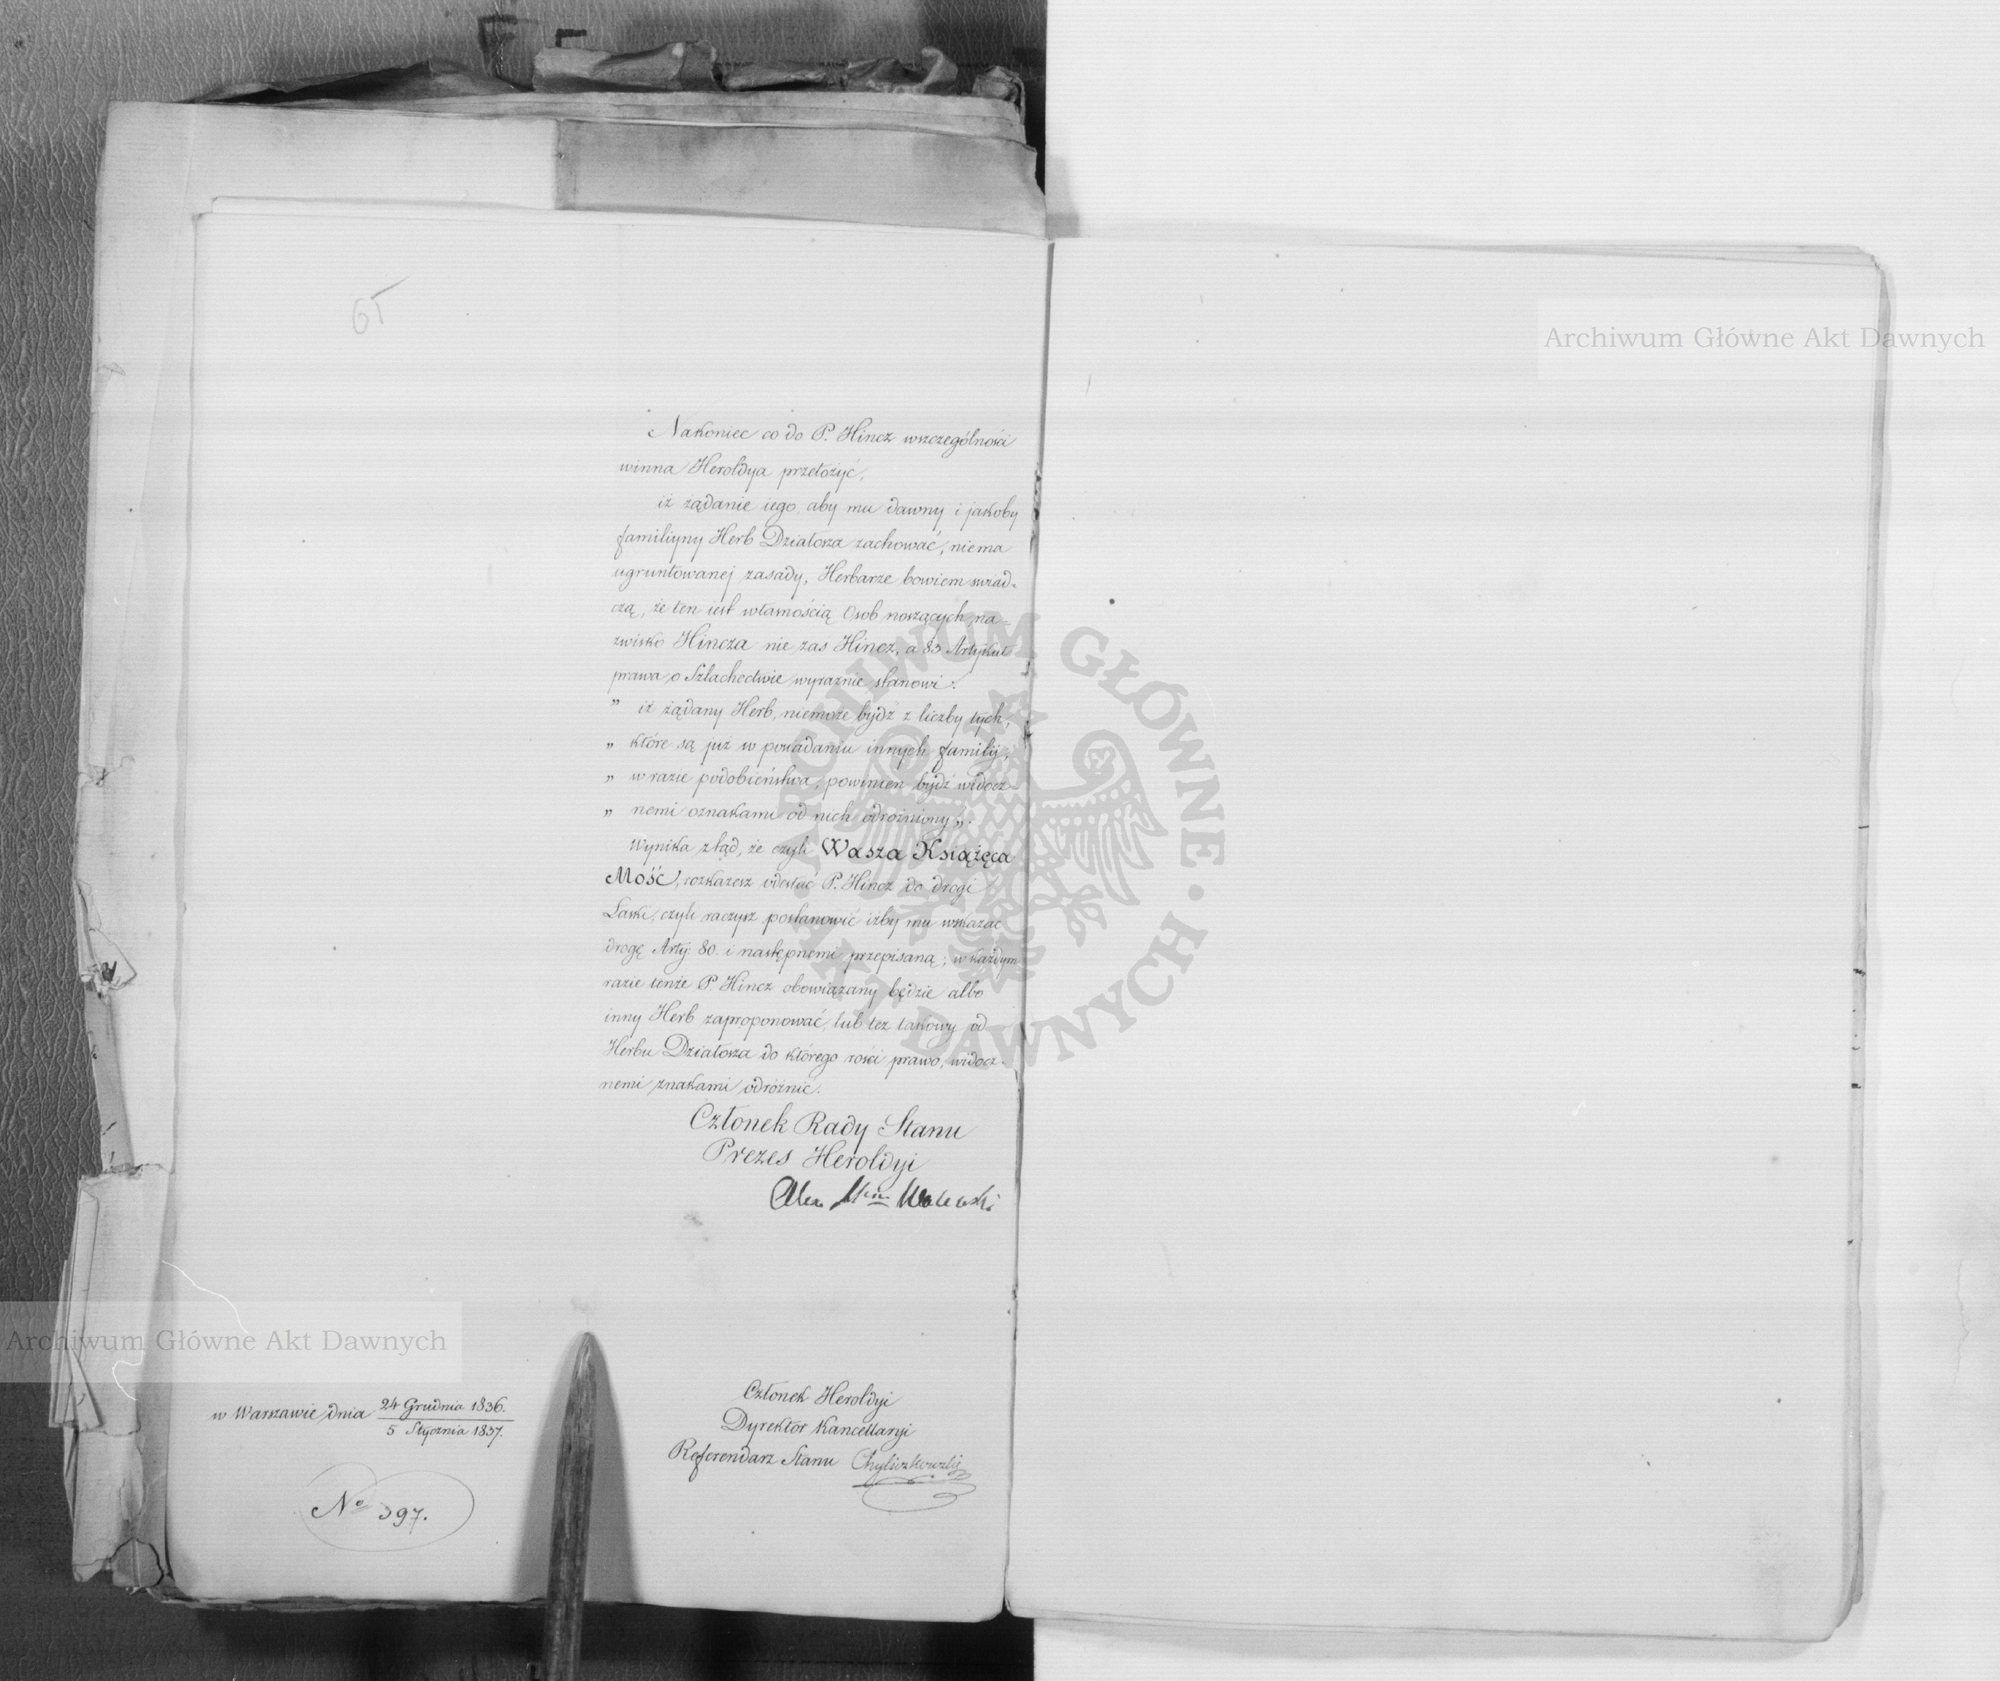 65
Nakoniec co do P. Hincz wszczególności
winna Heroldya przełożyć,
iż żądanie iego, aby mu dawny i jakoby
familiyny Herb Działosza zachować, niema
ugruntowanej zasady, Herbarze bowiem świad-
czą, że ten iest własnością Osob noszących na-
zwisko Hincza nie zas Hincz, a 83 Artykuł
prawa o Szlachectwie wyraznie stanowi:
" iż żądany Herb, niemoże bydź z liczby tych,
" które są już w posiadaniu innych familij,
" w razie podobieństwa, powinien bydź widocz-
" nemi oznakami od nich odrożniony".
Wynika ztąd, że czyli Wasza Książęca
Mość, rozkażesz odesłać P. Hincz do drogi
Łaski, czyli raczysz postanowić iżby mu wskazac
drogę Arty: 80. i następnemi przepisaną; w każdym
razie tenże P. Hincz obowiązany będzie albo
inny Herb zaproponować, lub też takowy od
Herbu Działosza do którego rości prawo, widocz-
nemi znakami odróżnić.
Członek Rady Stanu
Prezes Heroldyi
Alex. Walewski
w Warszawie dnia 24 Grudnia 1836.
5 Stycznia 1837.
Członek Heroldyi
Dyrektor Kancellaryi
Referendarz Stanu Chyliczkowski
No 397.
Archiwum Główne Akt Dawnych
Archiwum Główne Akt Dawnych
ARCHIWUM GŁÓWNE AKT DAWNYCH